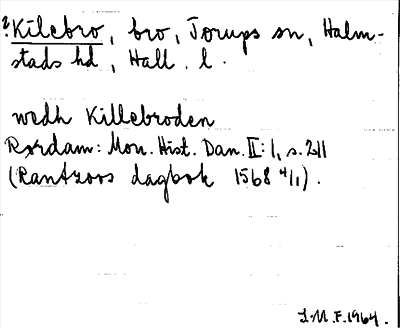 ?Kilebro, bro, Torups sn, Halm-
stads hd, Hall. l.
wedh Killebroden
Rørdam: Mon. Hist. Dan. II: 1, s. 211
(Rantzoos dagbok 1568 4/1).
I.M.F. 1964.